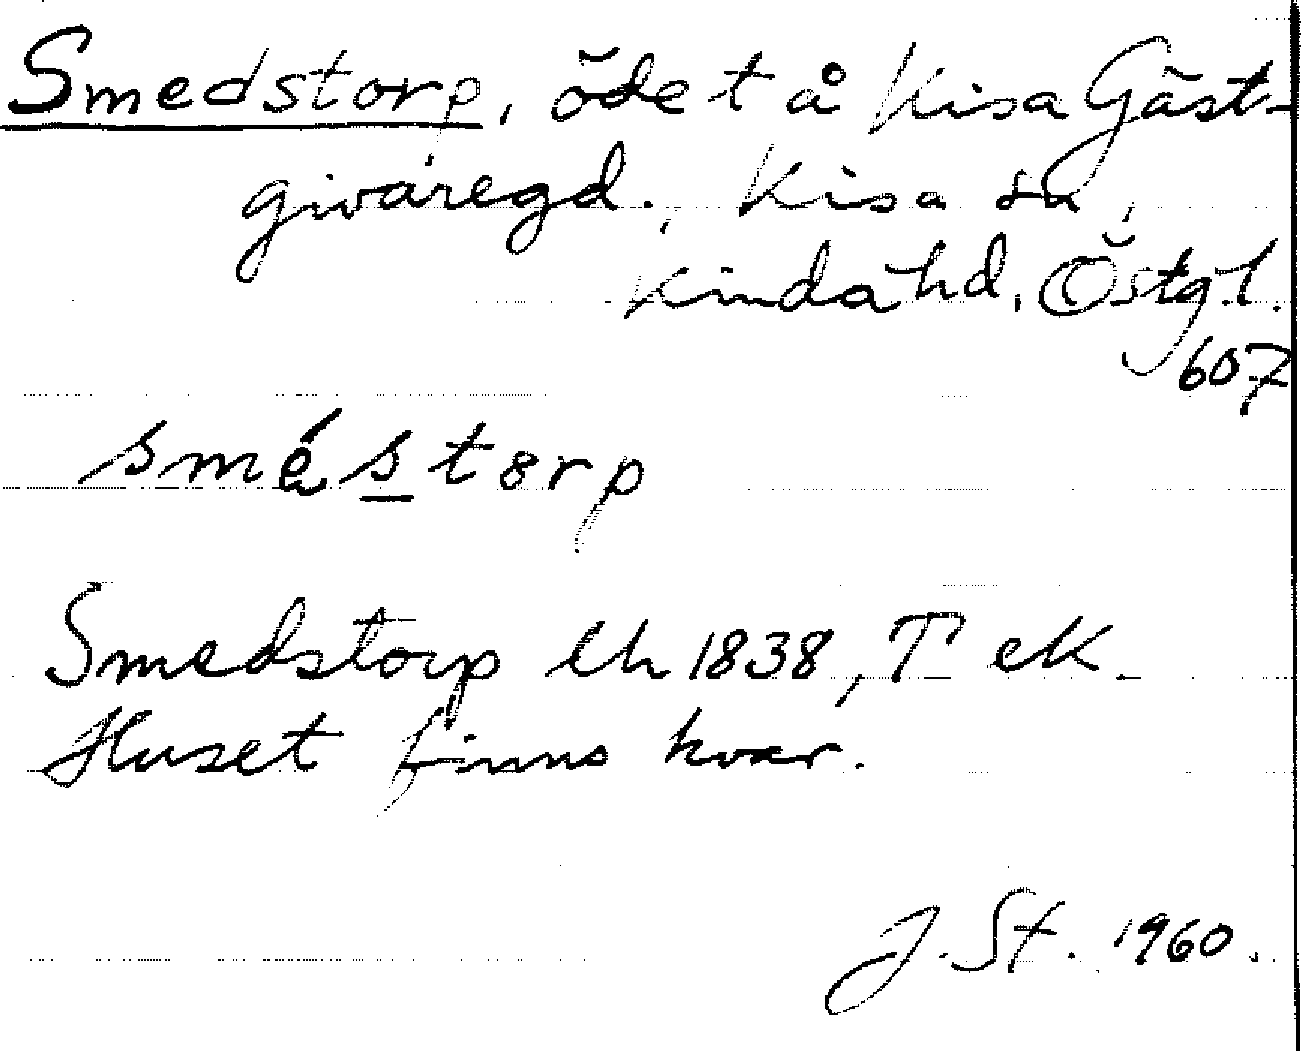 Smedstorp, öde t å Kisa Gäst-
givaregd., Kisa sn,
Kinda hd, Östg.l.
607
sméstorp
Smedstorp lh 1838, T ek.
Huset finns kvar.
J. St. 1960.